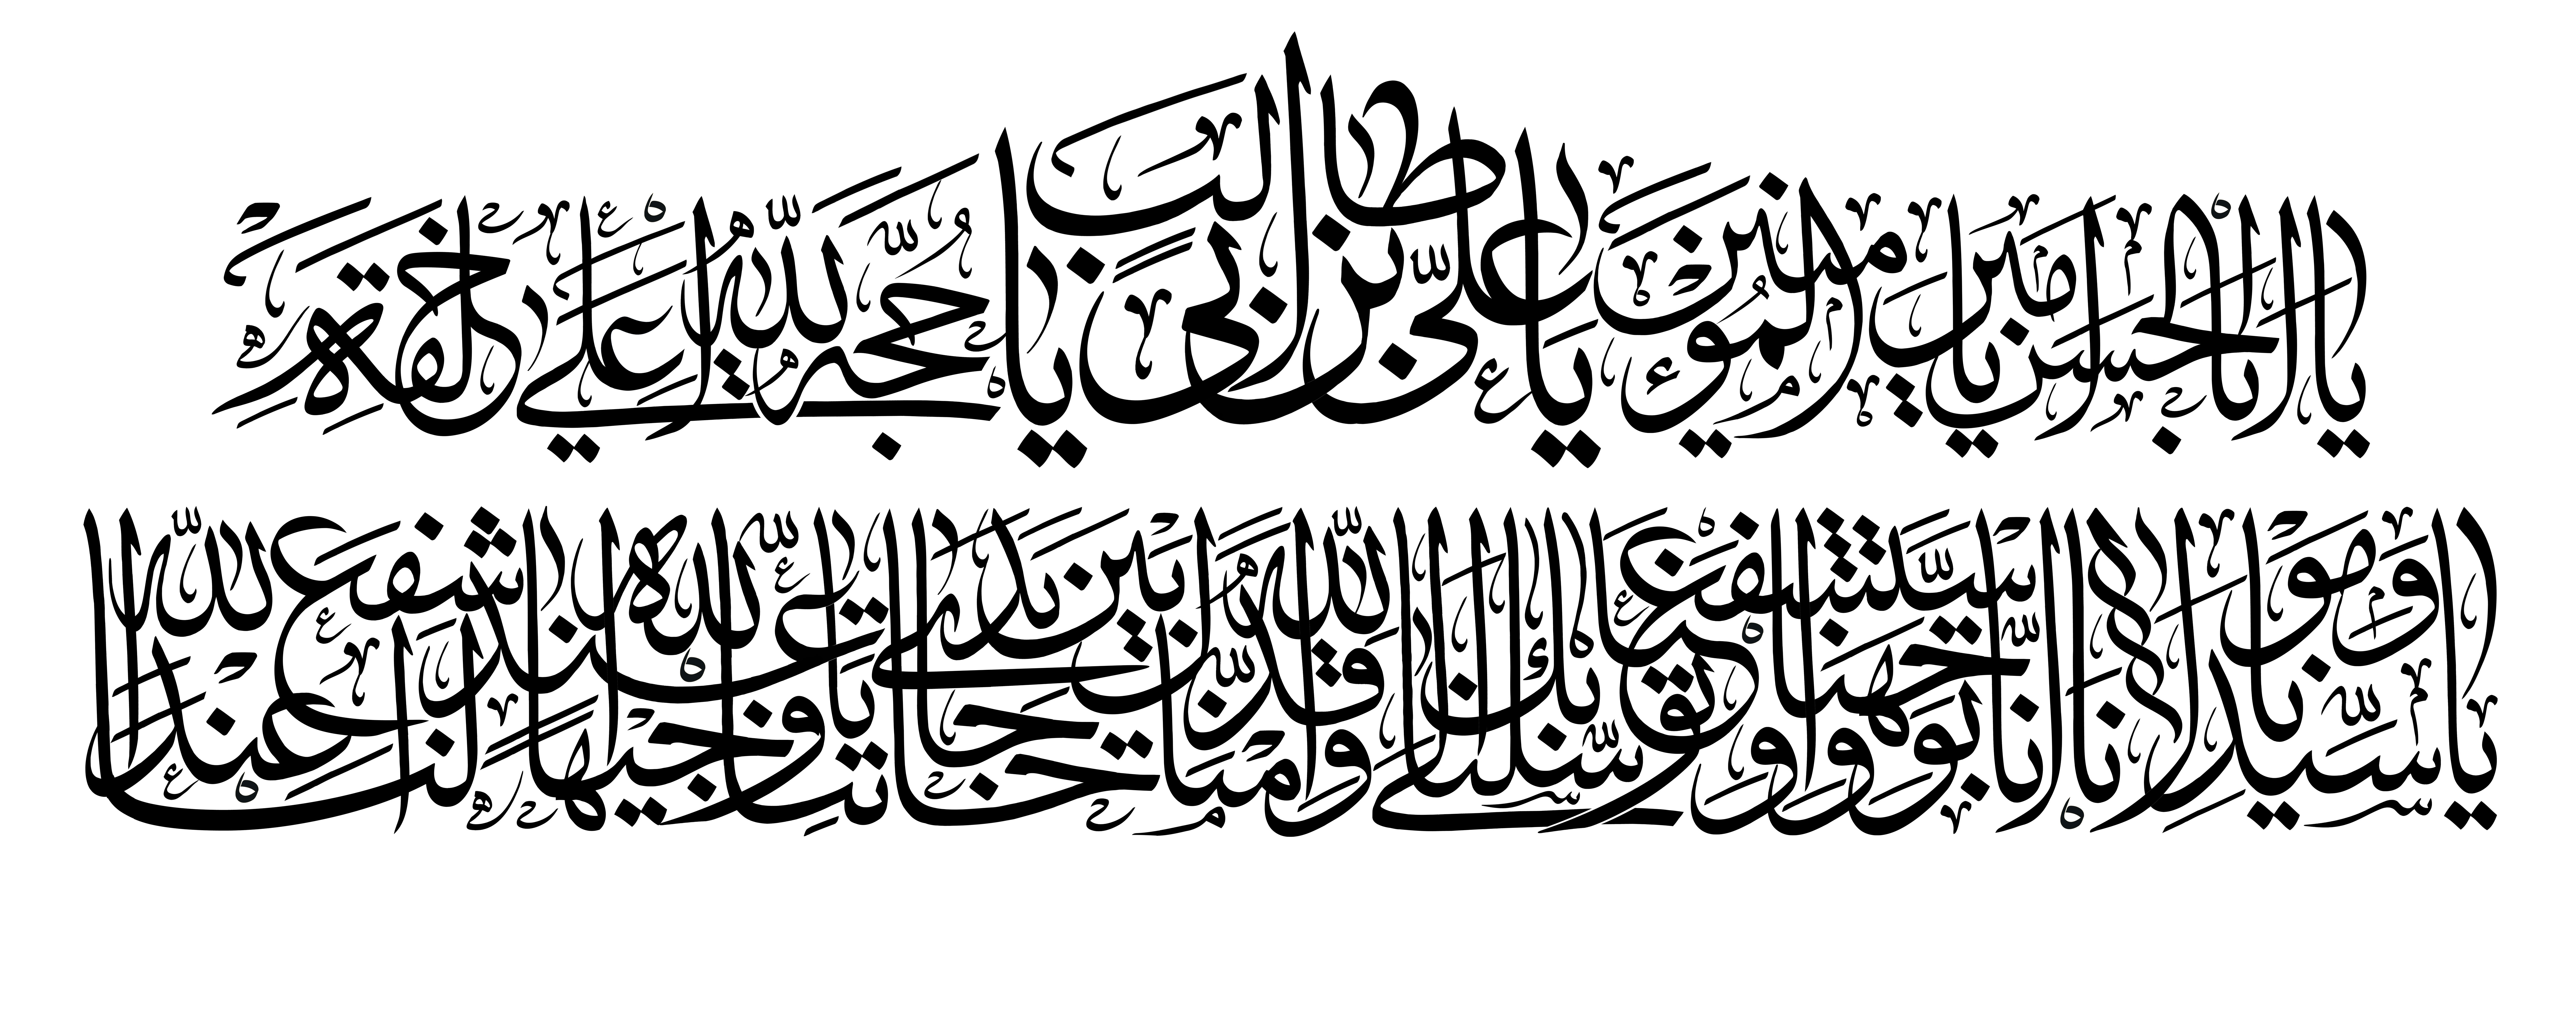 يا أبا الحسن يا أمير المؤمنين يا علي بن أبي طالب يا حجة الله على خلقه
يا سيدنا ومولانا إنا توجهنا واستشفعنا وتوسلنا بك إلى الله وقدمناك بين يدي حاجاتنا يا وجيها عند الله اشفع لنا عند الله